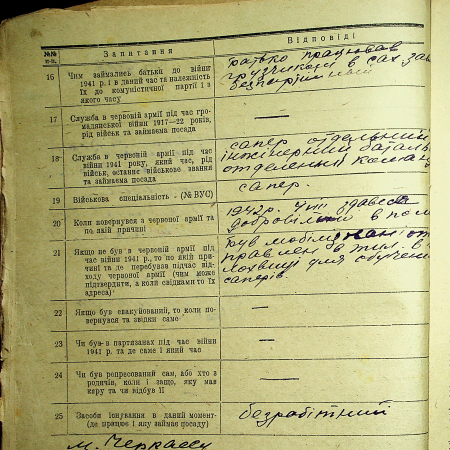 №№ п-п.
Запитання
Відповіді
16
Чим займались батьки до війни
1941 р. і в даний час та належність
їх до комуністичної партії і з
якого часу
батько працював
грузчиком в сах. зав
безпартійний
17
Служба в червоній армії під час гро-
мадянської війни 1917—22 років,
рід військ та займаєма посада
—
18
Служба в червоній армії під час
війни 1941 року, який час, рід
військ, останнє військове звання
та займаєма посада
сапер отдельний
інженерний баталь
отделений коман
19
Військова спеціальність - (№ ВУС)
сапер.
20
Коли повернувся з червоної армії та
по якій причині
1942 р.
добровільно в пол
21
Якщо не був в червоній армії під
час війни 1941 р., то по якій при-
чині та де перебував підчас від-
ходу червоної армії (чим може
підтвердити, а коли свідками то їх
адреса)
був мобілізован і от
правлен в тил. в
для обучени
саперів.
22
Якщо був евакуйований, то коли по-
вернувся та звідки саме
—
23
Чи був в партизанах під час війни
1941 р. та де саме і який час
—
24
Чи був репресований сам, або хто з
родичів, коли і защо, яку мав
керу та чи відбув її
—
25
Засоби існування в даний момент-
(де працює і яку займає посаду)
безработний
м. Черкассы